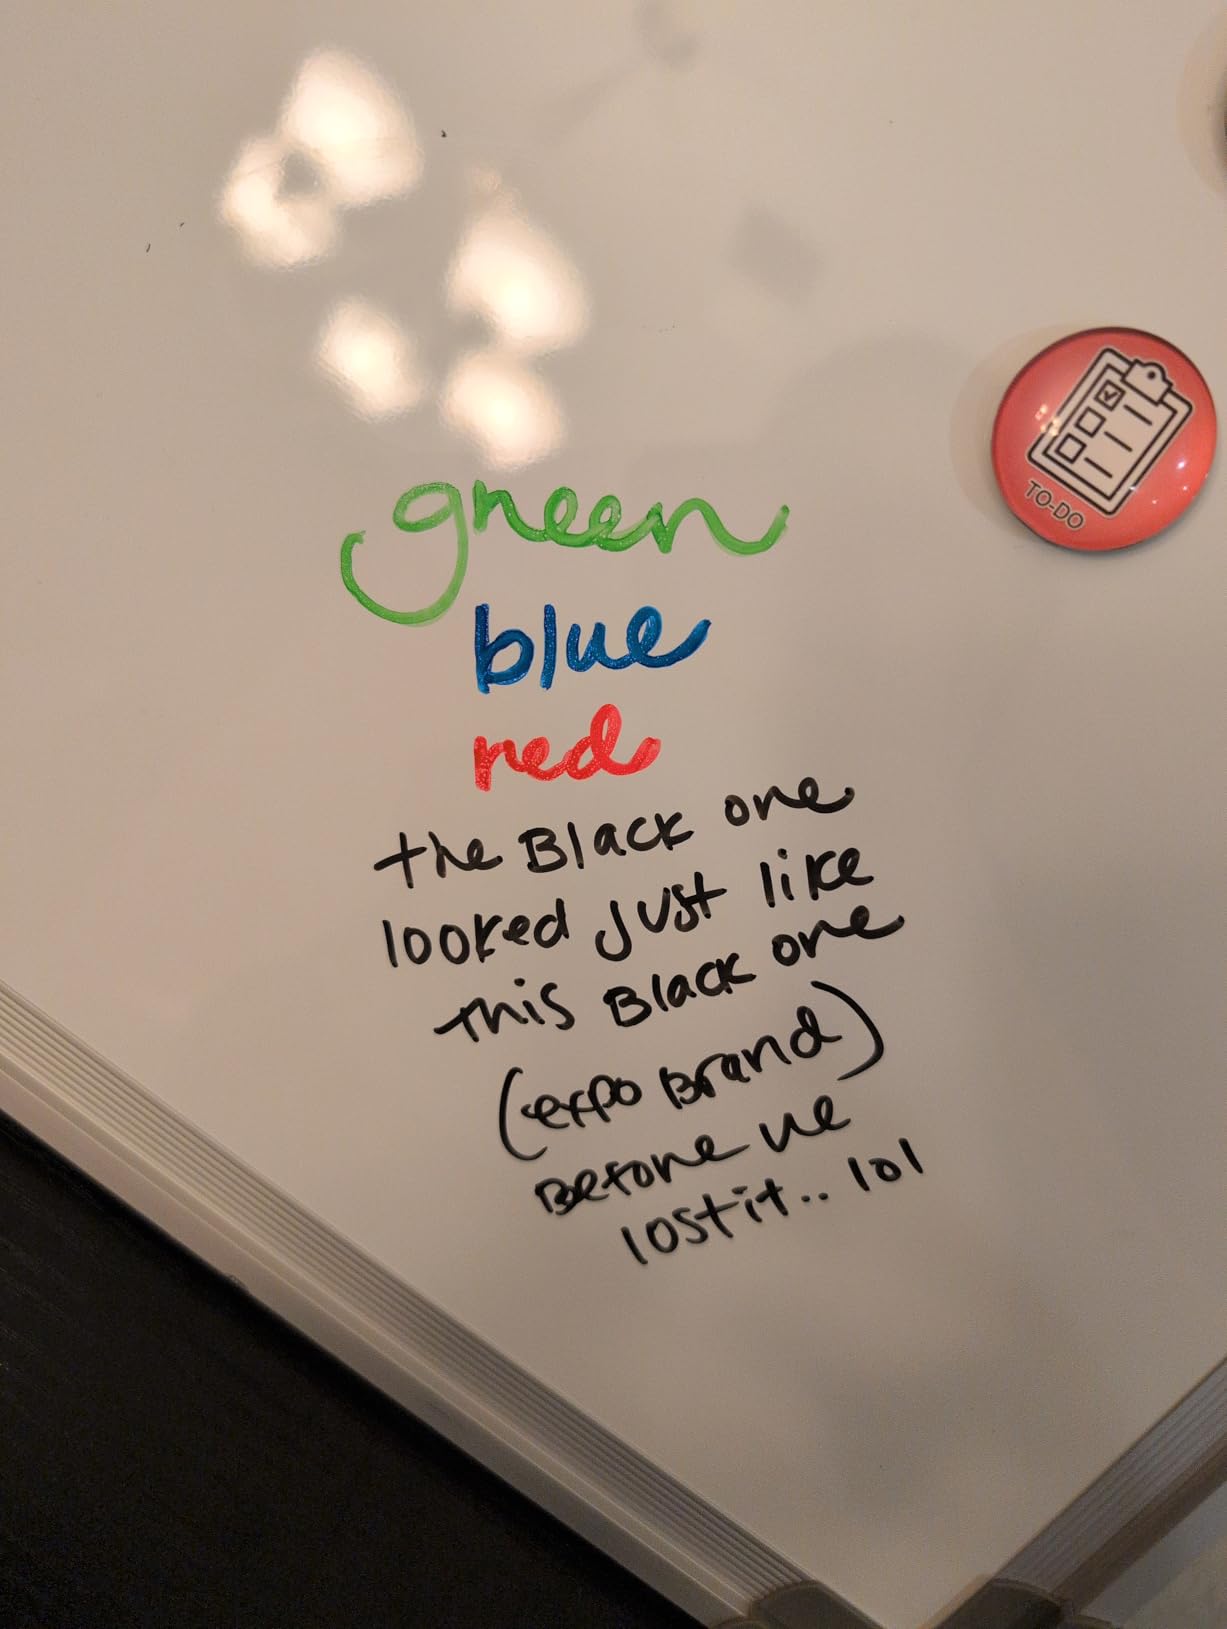 green
blue
red
the Black one
looked just like
this Black one
(expo Brand)
Before we
lost it.. lol
TO-DO